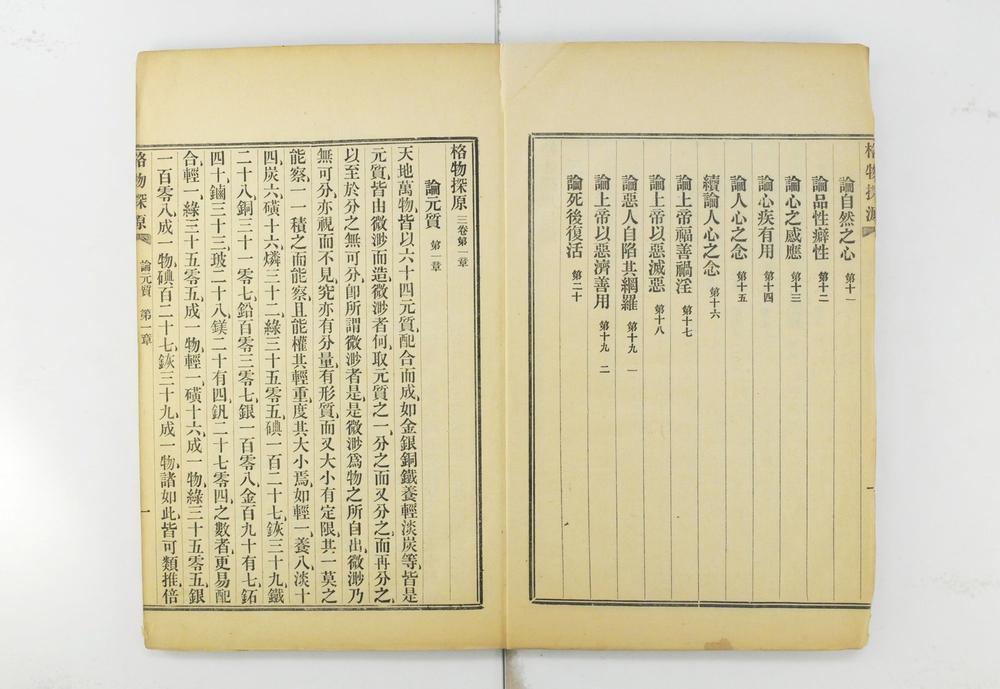 格物探源
論自然之心 第十一
論品性癖性 第十二
論心之感應 第十三
論心疾有用 第十四
論人心之念 第十五
續論人心之念 第十六
論上帝福善禍淫 第十七
論上帝以惡滅惡 第十八
論惡人自陷其網羅 第十九 一
論上帝以惡濟善用 第十九 二
論死後復活 第二十
一
格物探原 三卷第一章
論元質 第一章
天地萬物皆以六十四元質配合而成、如金銀銅鐵養輕淡炭等、皆是
元質、皆由微渺而造、微渺者何、取元質之一、分之而又分之、而再分之、
以至於分之無可分、卽所謂微渺者是、是微渺爲物之所自出、微渺乃
無可分、亦視而不見、究亦有分量、有形質、而又大小有定限、其一莫之
能察、一一積之而能察、且能權其輕重、度其大小焉、如輕一、養八、淡十
四、炭六、磺十六、燐三十二、綠三十五零五、碘一百二十七、鉃三十九、鐵
二十八、銅三十一零七、鉛百零三零七、銀一百零八、金百九十有七、鉐
四十、鏀三十三、玻二十八、鎂二十有四、釩二十七零四之數者、更易配
合、輕一、綠三十五零五、成一物、輕一、磺十六、成一物、綠三十五零五、銀
一百零八、成一物、碘百二十七、鉃三十九、成一物、諸如此、皆可類推、倍
格物探原 論元質 第一章
一